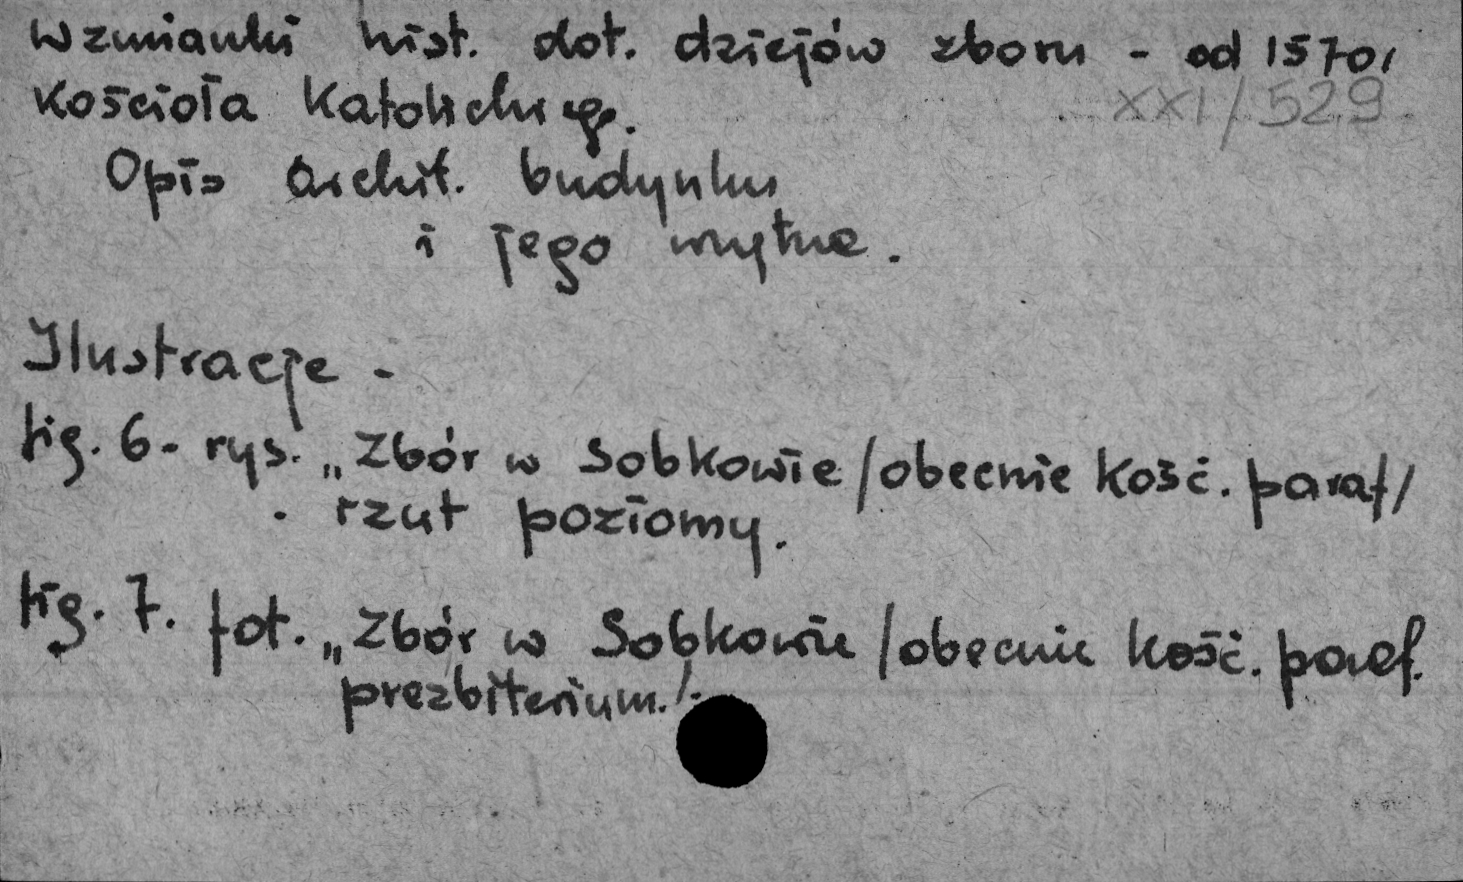 Wzmianki hist. dot. dziejów zboru - od 1570,
Kościoła Katolickiego.
XXI/529
Opis archit. budynku
i jego wnętrza.
Ilustracje -
fig. 6 - rys. „Zbór w Sobkowie /obecnie Kość. paraf/
rzut poziomy.
fig. 7. fot. „Zbór w Sobkowie /obecnie kość. paraf.
prezbiterium./.